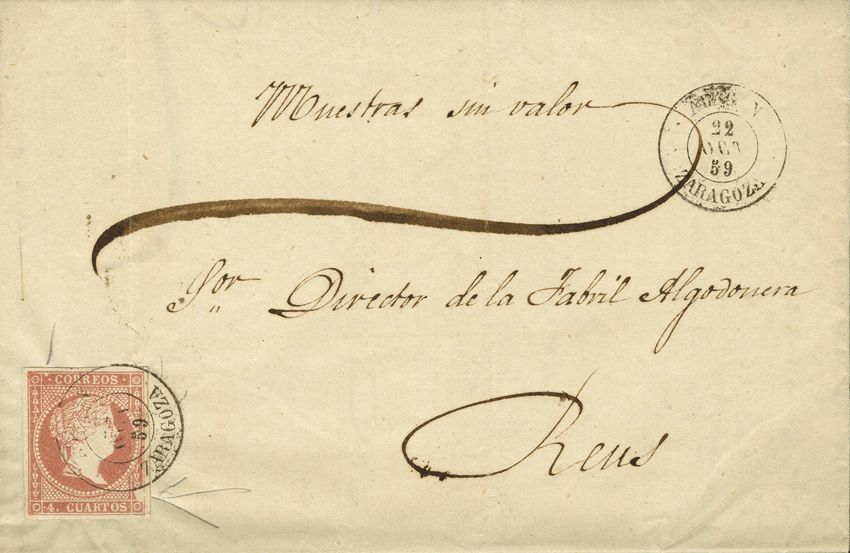 Muestras sin valor
22
OCT
59
ZARAGOZA
Sor Director de la Fabril Algodonera
Reus
CORREOS
59
ZARAGOZA
4. CUARTOS